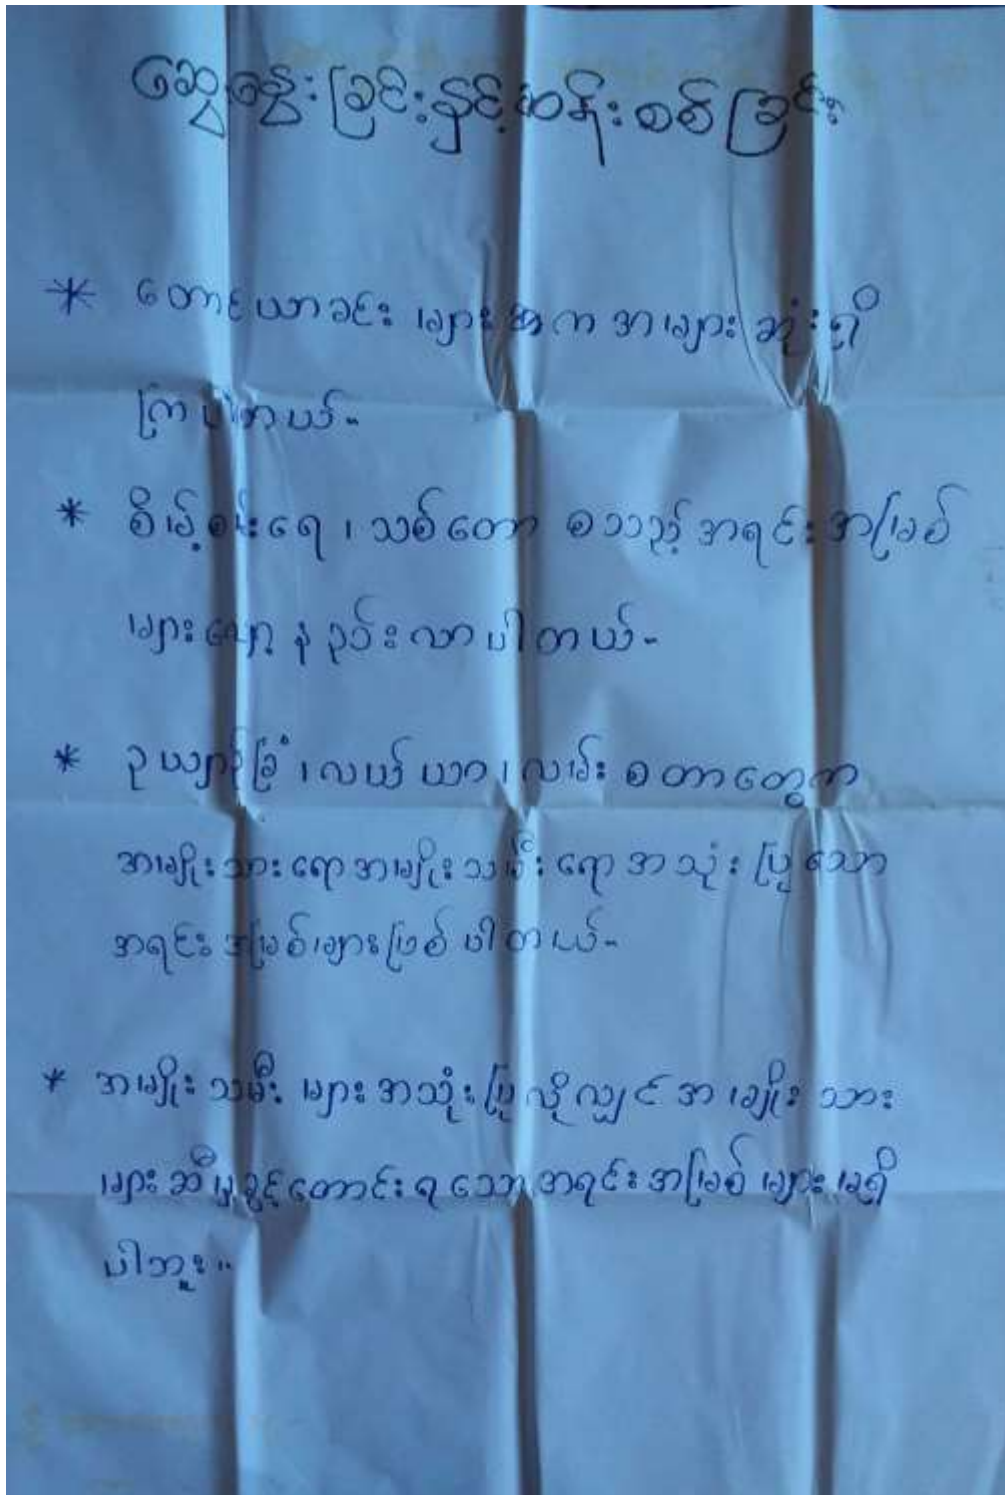 ဆွေးနွေးခြင်းနှင့်ဆန်းစစ်ခြင်း
* တောင်ယာခင်းများ က အများဆုံးရှိ
ကြပါတယ်။
* စိမ့်စမ်းရေ၊ သစ်တော စသည့်အရင်းအမြစ်
များလျော့နည်းလာပါတယ်။
* ဥယျာဉ်ခြံ၊ လယ်ယာ၊ လမ်း စတာတွေက
အမျိုးသားရောအမျိုးသမီးရောအသုံးပြုသော
အရင်းအမြစ်များဖြစ်ပါတယ်။
* အမျိုးသမီးများအသုံးပြုလိုလျှင်အမျိုးသား
များဆီမှခွင့်တောင်းရသောအရင်းအမြစ်များမရှိ
ပါဘူး။